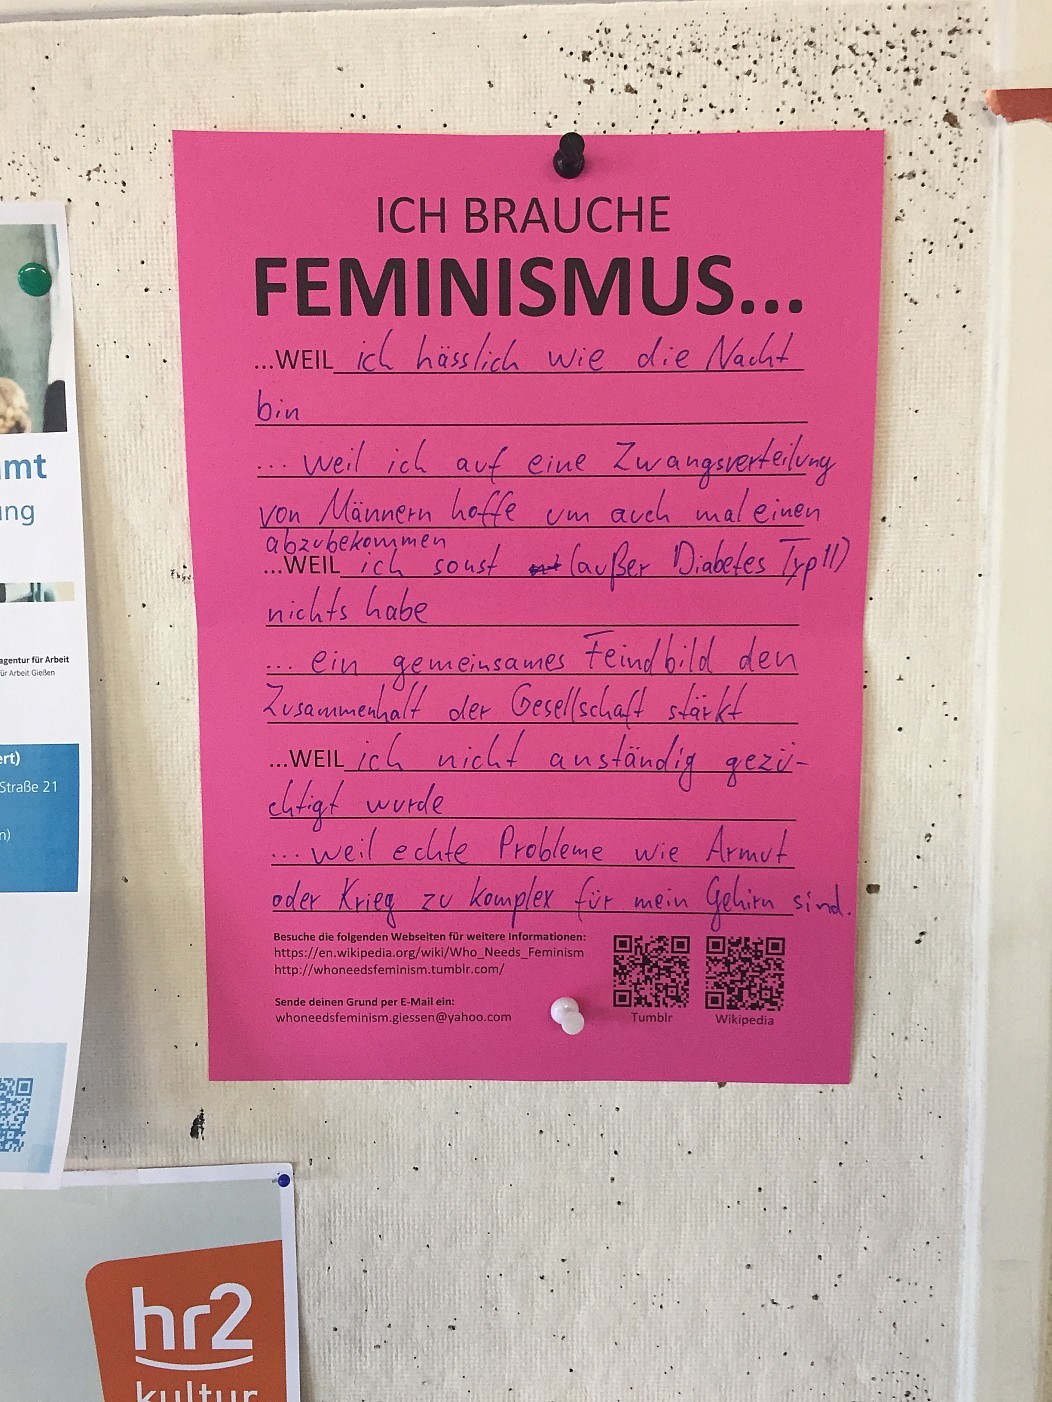 ICH BRAUCHE
FEMINISMUS...
...WEIL ich hässlich wie die Nacht
bin
... weil ich auf eine Zwangsverteilung
von Männern hoffe um auch mal einen
abzubekommen
...WEIL ich sonst (außer Diabetes Typ II)
nichts habe
... ein gemeinsames Feindbild den
Zusammenhalt der Gesellschaft stärkt
...WEIL ich nicht anständig gezü-
chtigt wurde
... weil echte Probleme wie Armut
oder Krieg zu komplex für mein Gehirn sind.
Besuche die folgenden Webseiten für weitere Informationen:
https://en.wikipedia.org/wiki/Who_Needs_Feminism
http://whoneedsfeminism.tumblr.com/
Sende deinen Grund per E-Mail ein:
whoneedsfeminism.giessen@yahoo.com
Tumblr
Wikipedia
mt
ng
agentur für Arbeit
für Arbeit Gießen
ert)
Straße 21
n)
hr2
kultur